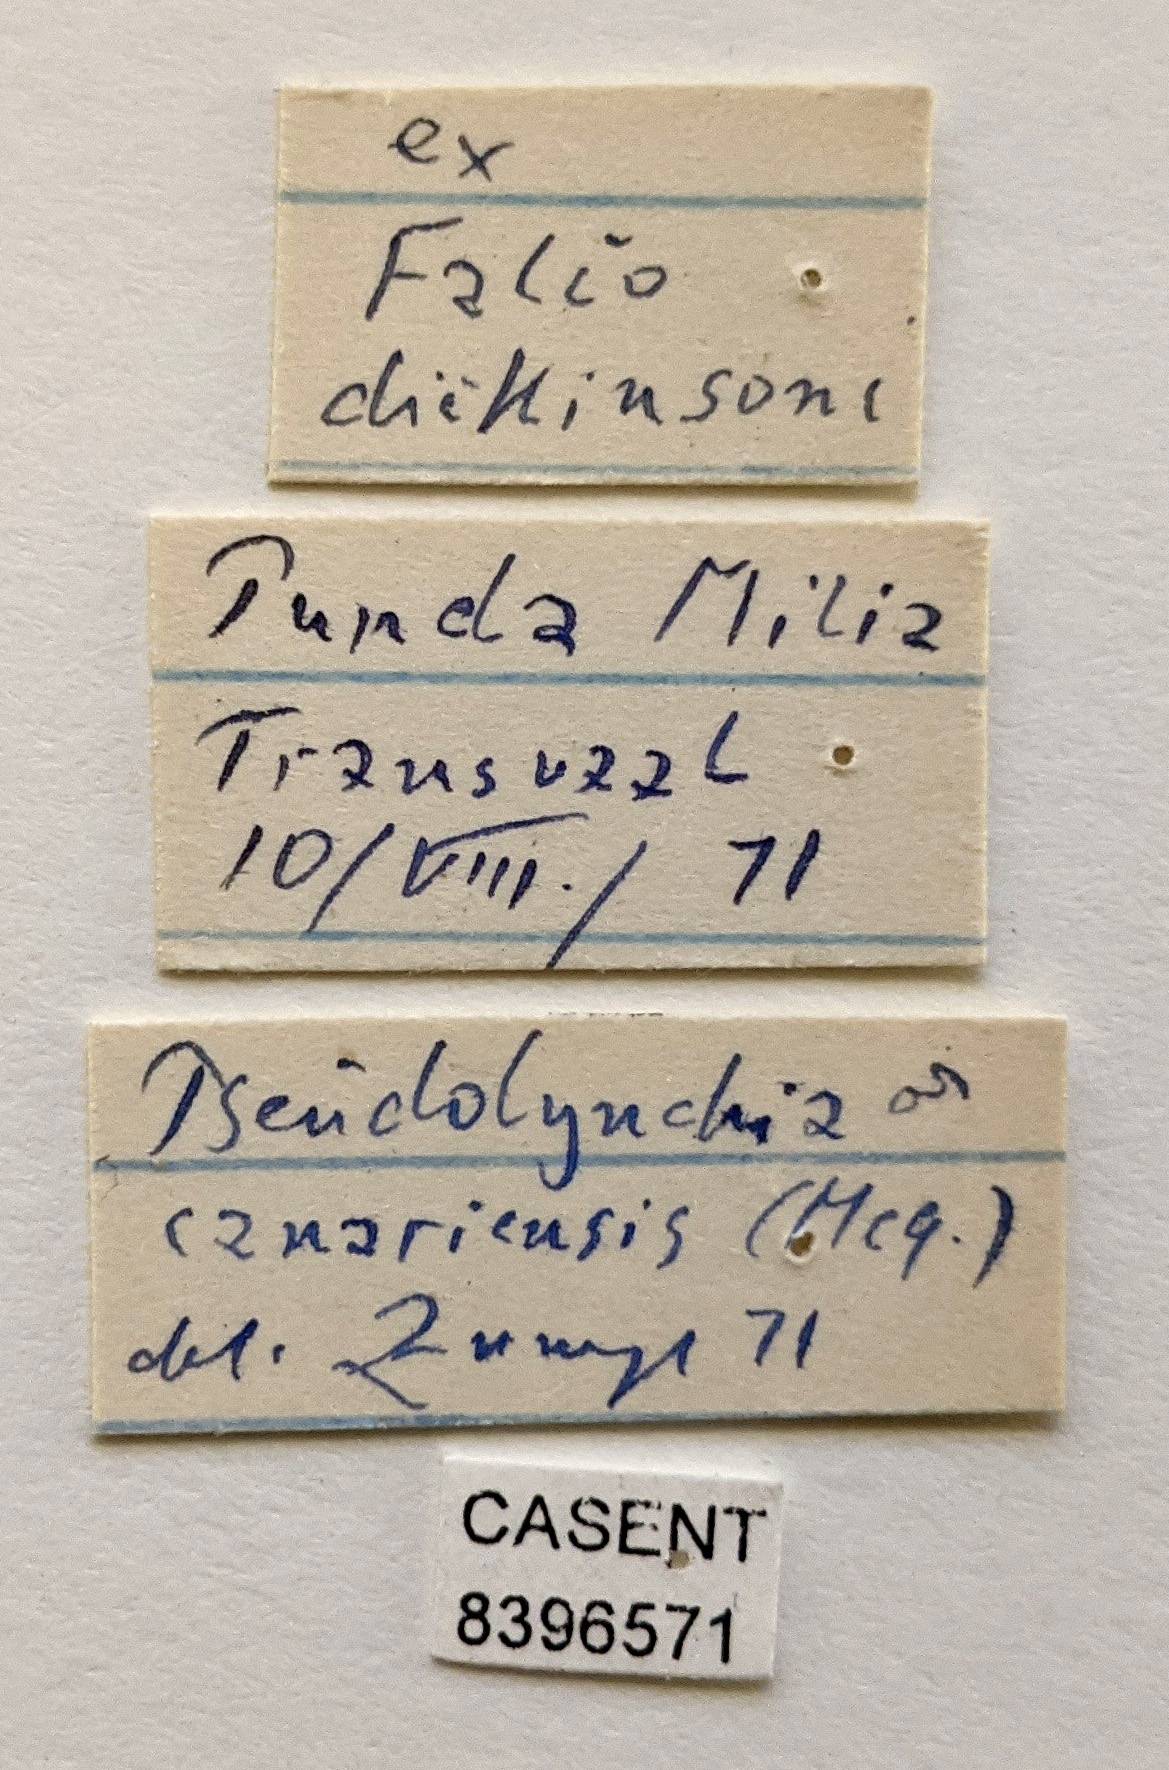 ex
Falco
dickinsoni
Punda Milia
Transvaal
10/VIII./71
Pseudolynchia ♂
canariensis (Mcq.)
det. 71
CASENT
8396571